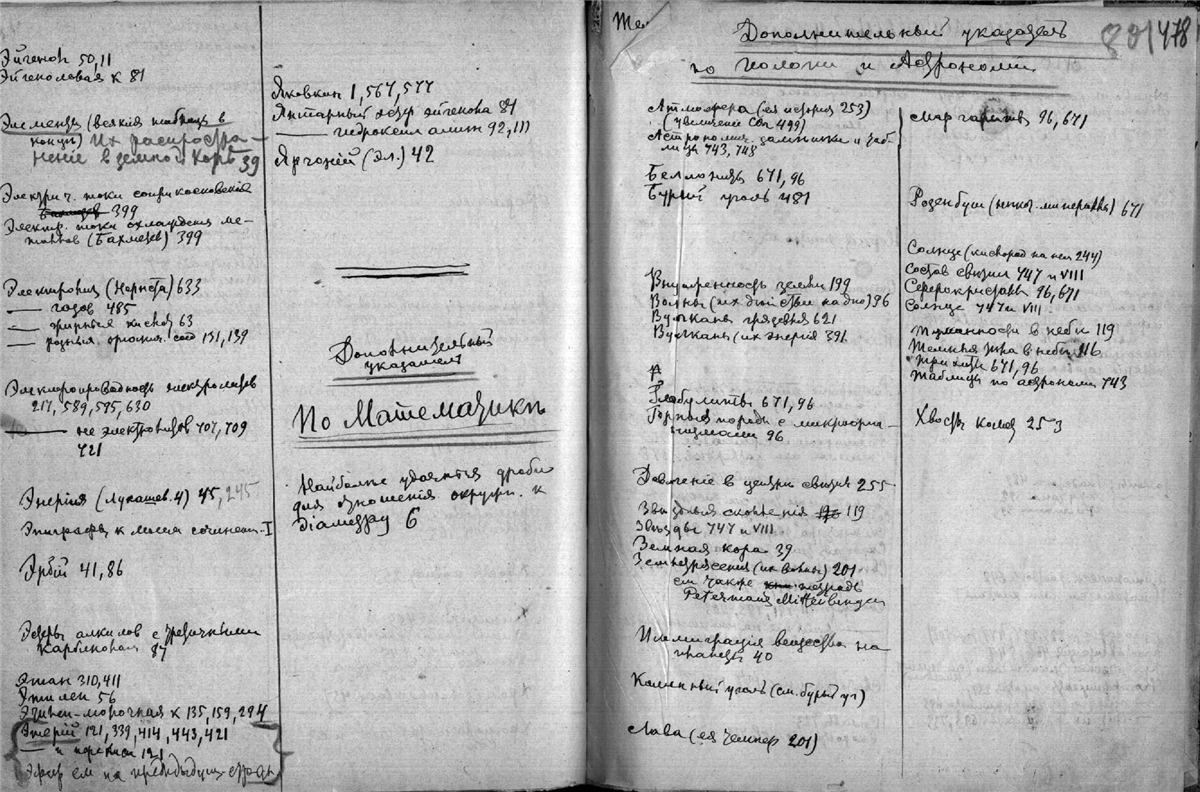 Эйгенол 50,11
Эйгеноловая к 81
Элементы (всякия таблицы в
концѣ) Их распростра-
неніе в земной корѣ 39
Электрич. токи соприкосновенія
399
Электр. токи охлажденія ме-
таллов (Бахметев) 399
Электровиз (Нернста) 633
—— газов 485
—— жирныя кислот 63
—— родныя органич. соед 151,139
Электропроводность электролитов
217, 589, 595, 630
—— не электролитов 707, 709
421
Энергія (Лукашев. 4) 45, 245
Эпиграфъ к моим сочинен. I
Эрбій 41,86
Эфиры алкилов с третичными
карбинолами 87
Этан 310,411
Этилен 56
Этилен-молочная к 135, 159, 294
Этерій 121, 339, 414, 443, 421
—— и 121
Эфир см на предыдущ. стран.
Яковкин 1, 567, 577
Янтарный эфир эйгенола 81
—— гидроксиламин 92, 111
Яргоній (эл.) 42
Дополнительный
указатель
По Математикѣ
Наиболѣе удоб­ныя дроби
для отношенія окружн. к
діаметру 6
Дополнительный указатель
по геологіи и Астрономіи
801 478
Атмосфера (ея исторія 253)
(увеличение Co₂ 499)
Астрономич. замѣтки и таб-
лицы 743, 748
Беллониты 671, 96
Бурый уголь 481
Внутренность земли 199
Волны (их дѣйствіе на дно) 96
Вулканы грязевыя 621
Вулканы (их энергія 391
Глобулиты 671, 96
Горныя породы с микроорга-
низмами 96
Давленіе в центрѣ 255
Звѣздныя скопленія 119
Звѣзды 747 и VIII
Земная кора 39
Землетрясенія (их волны) 201
см также тетрадь
Petermans Mitteilungen
Иммиграція вещества на
границѣ 40
Каменный уголь (см. бурый уг)
Лава (ея темпер 201)
Маргариты 96, 671
Розенбуш (микр. минералы) 671
Солнце (кислород на нем 244)
Состав 747 и VIII
Сферокристаллы 96, 671
Солнце 747 и VIII
Туманности в небѣ 119
Темныя мѣста в небѣ 116
Трихиты 671, 96
Таблицы по астрономіи 743
Хвосты комет 253